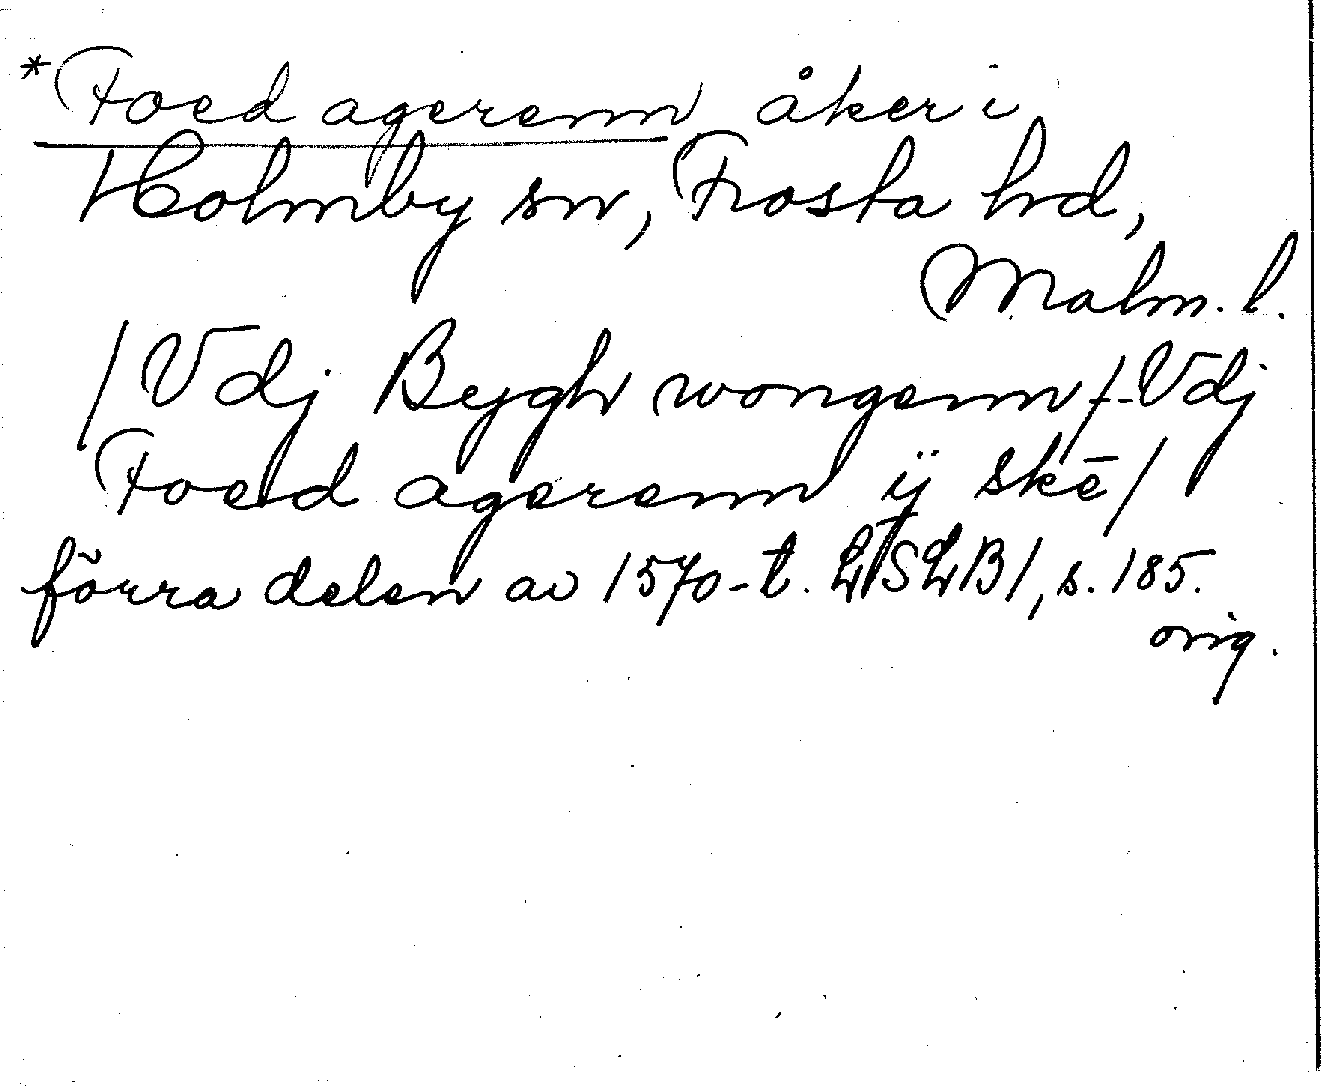 *Foed agerenn åker i
Holmby sn, Frosta hd,
Malm. l.
/Vdj Bygh wongenn/-Vdj
Foed agerenn ÿ skē/
förra delen av 1570-t. LSLB1, s. 185.
orig.